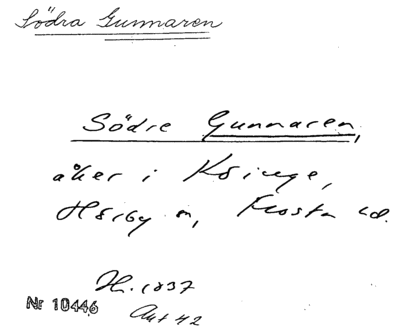 Södra Gunnaren
Södre Gunnaren,
åker i Köinge,
Hörby sn, Frosta hd.
H. 1837
Nr 10446 Akt 42